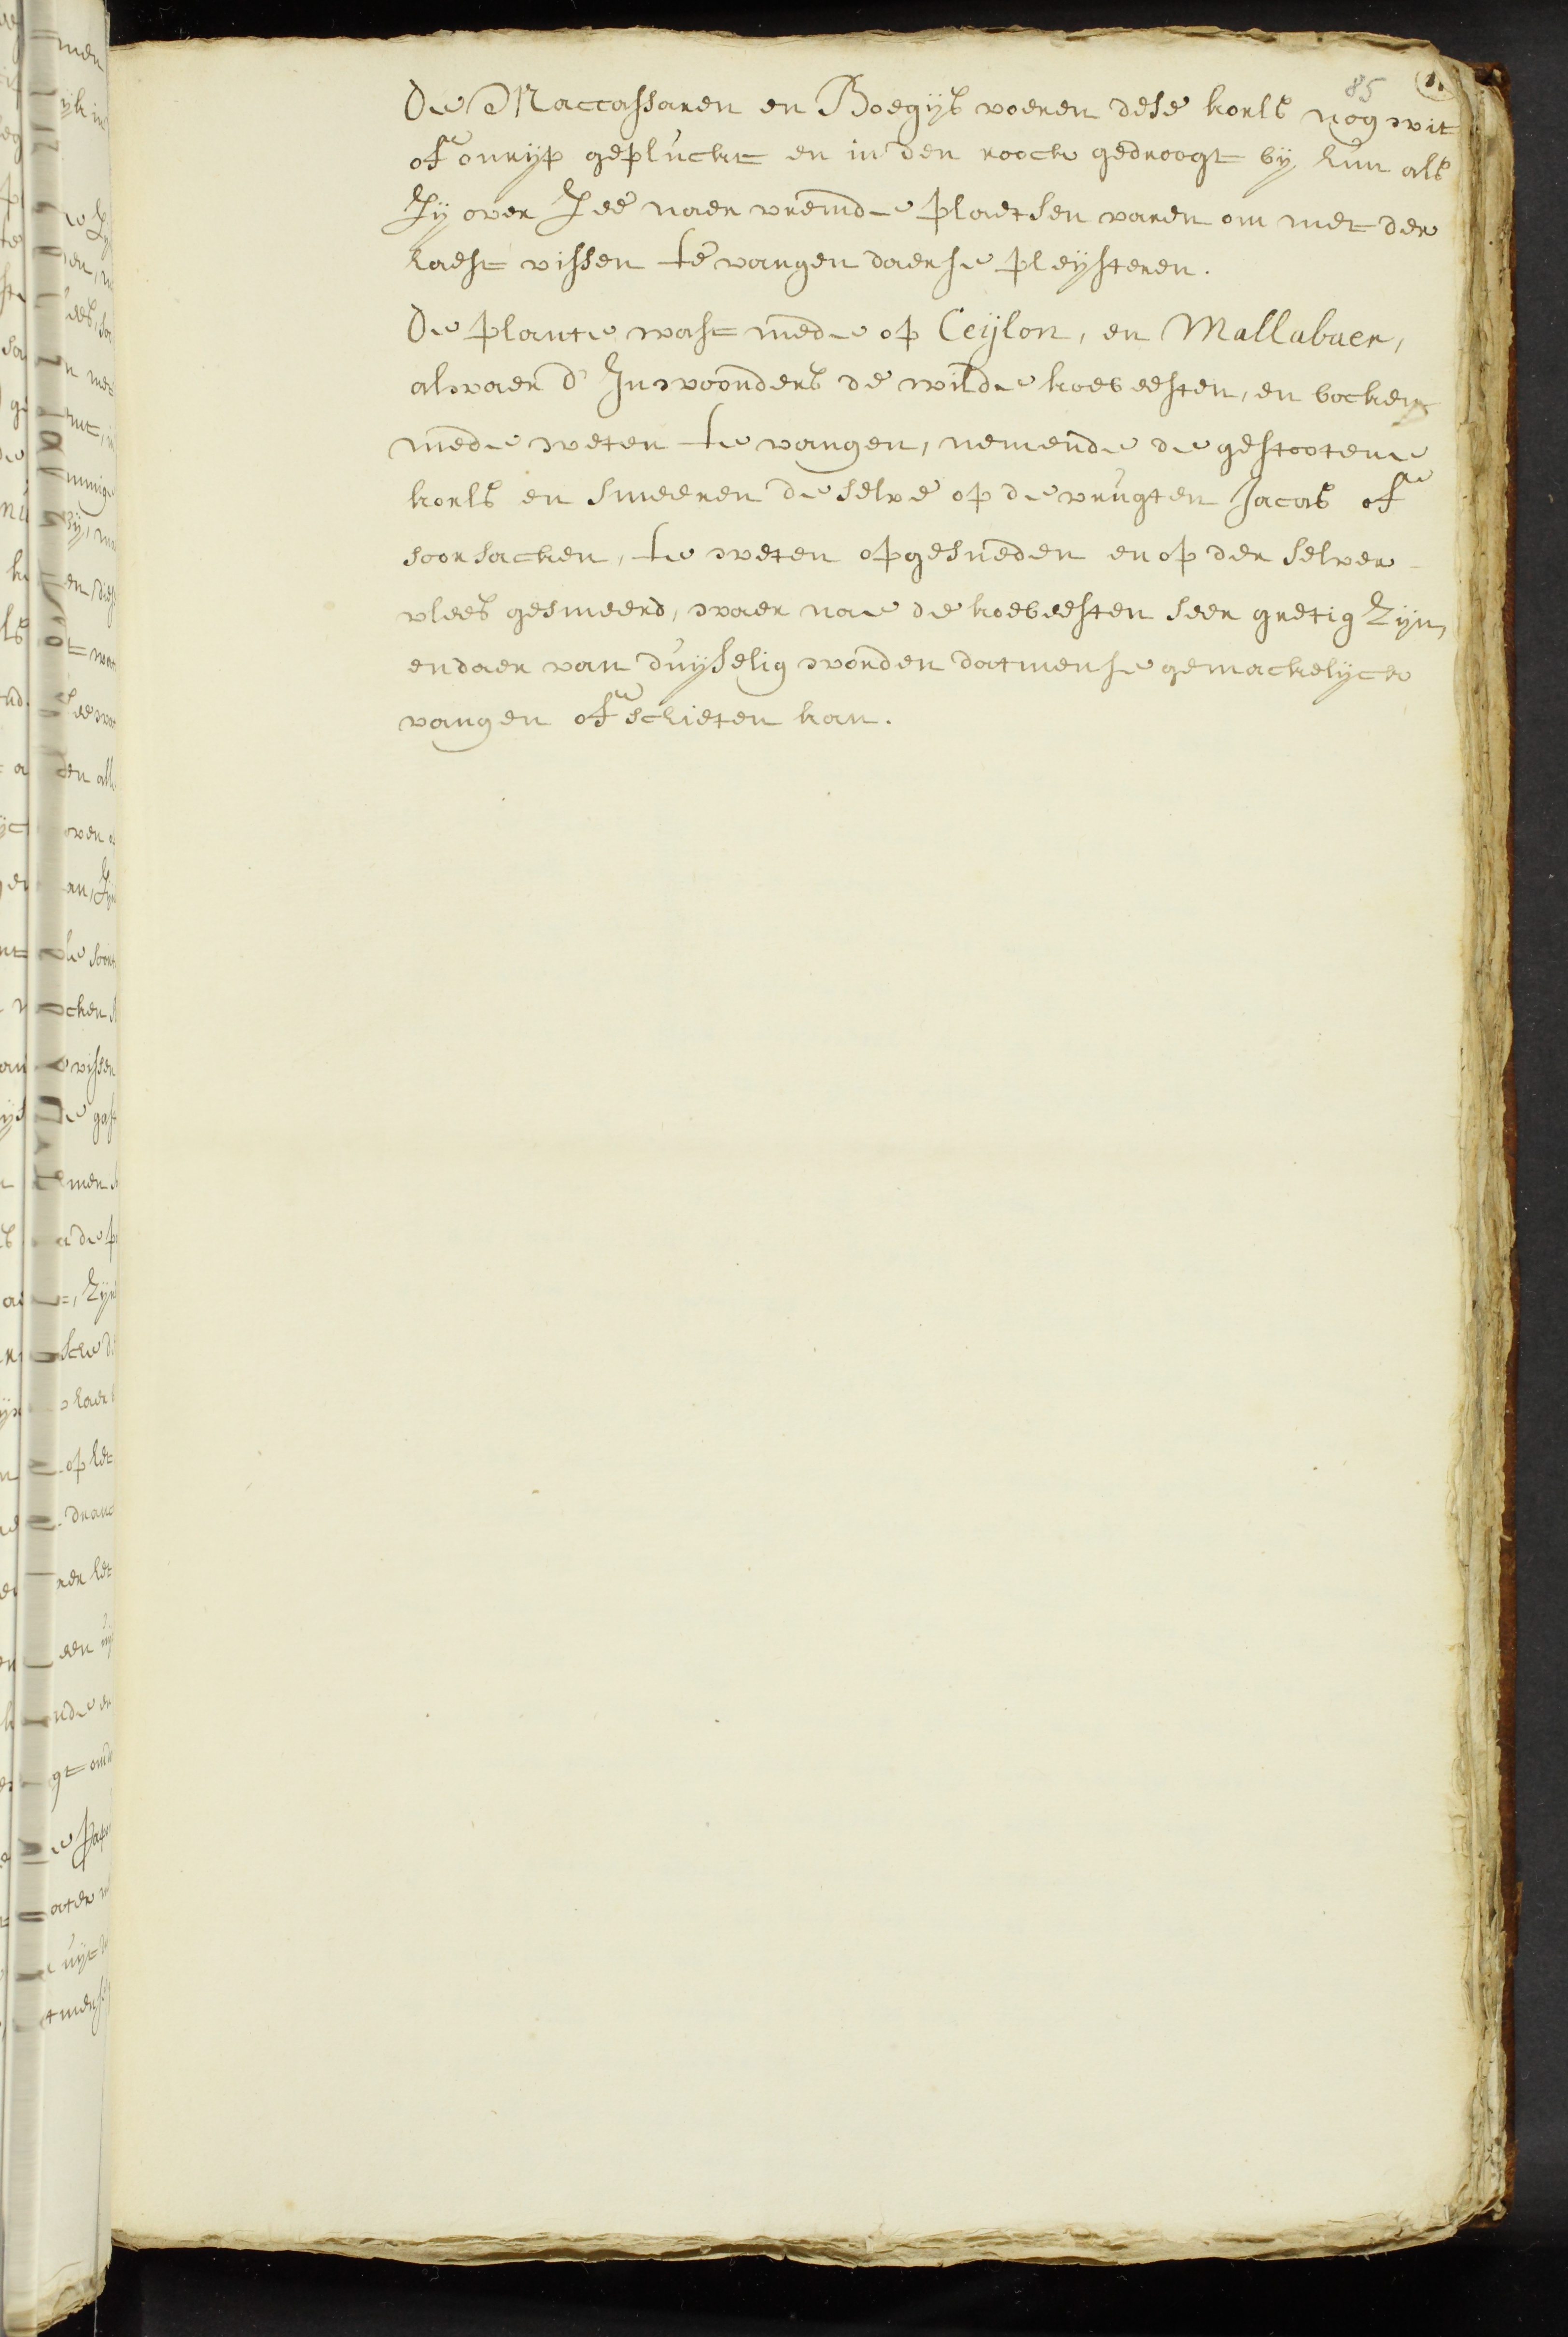 85 1.
De Maccassaren en Boegijs voeren dese korls nog wit
ofte onrijp gepluckt en in den roock gedroogt bij hun als
zij over Zee naer vremde plaetsen varen om met der
haest vissen te vangen daerse pleijsteren.
De plante wast mede op Ceijlon, en Mallabaer,
alwaer d' Inwoonders de wilde koebeesten, en bocken
mede weten te vangen, nemende de gestootene
korls en smeeren deselve op de vrugten Jacas ofte
soorsacken, te weten opgesneden en op der selver
vlees gesmeerd, waer nae de koebeesten seer gretig zijn,
en daer van duijselig worden datmense gemackelijck
vangen ofte schieten kan.